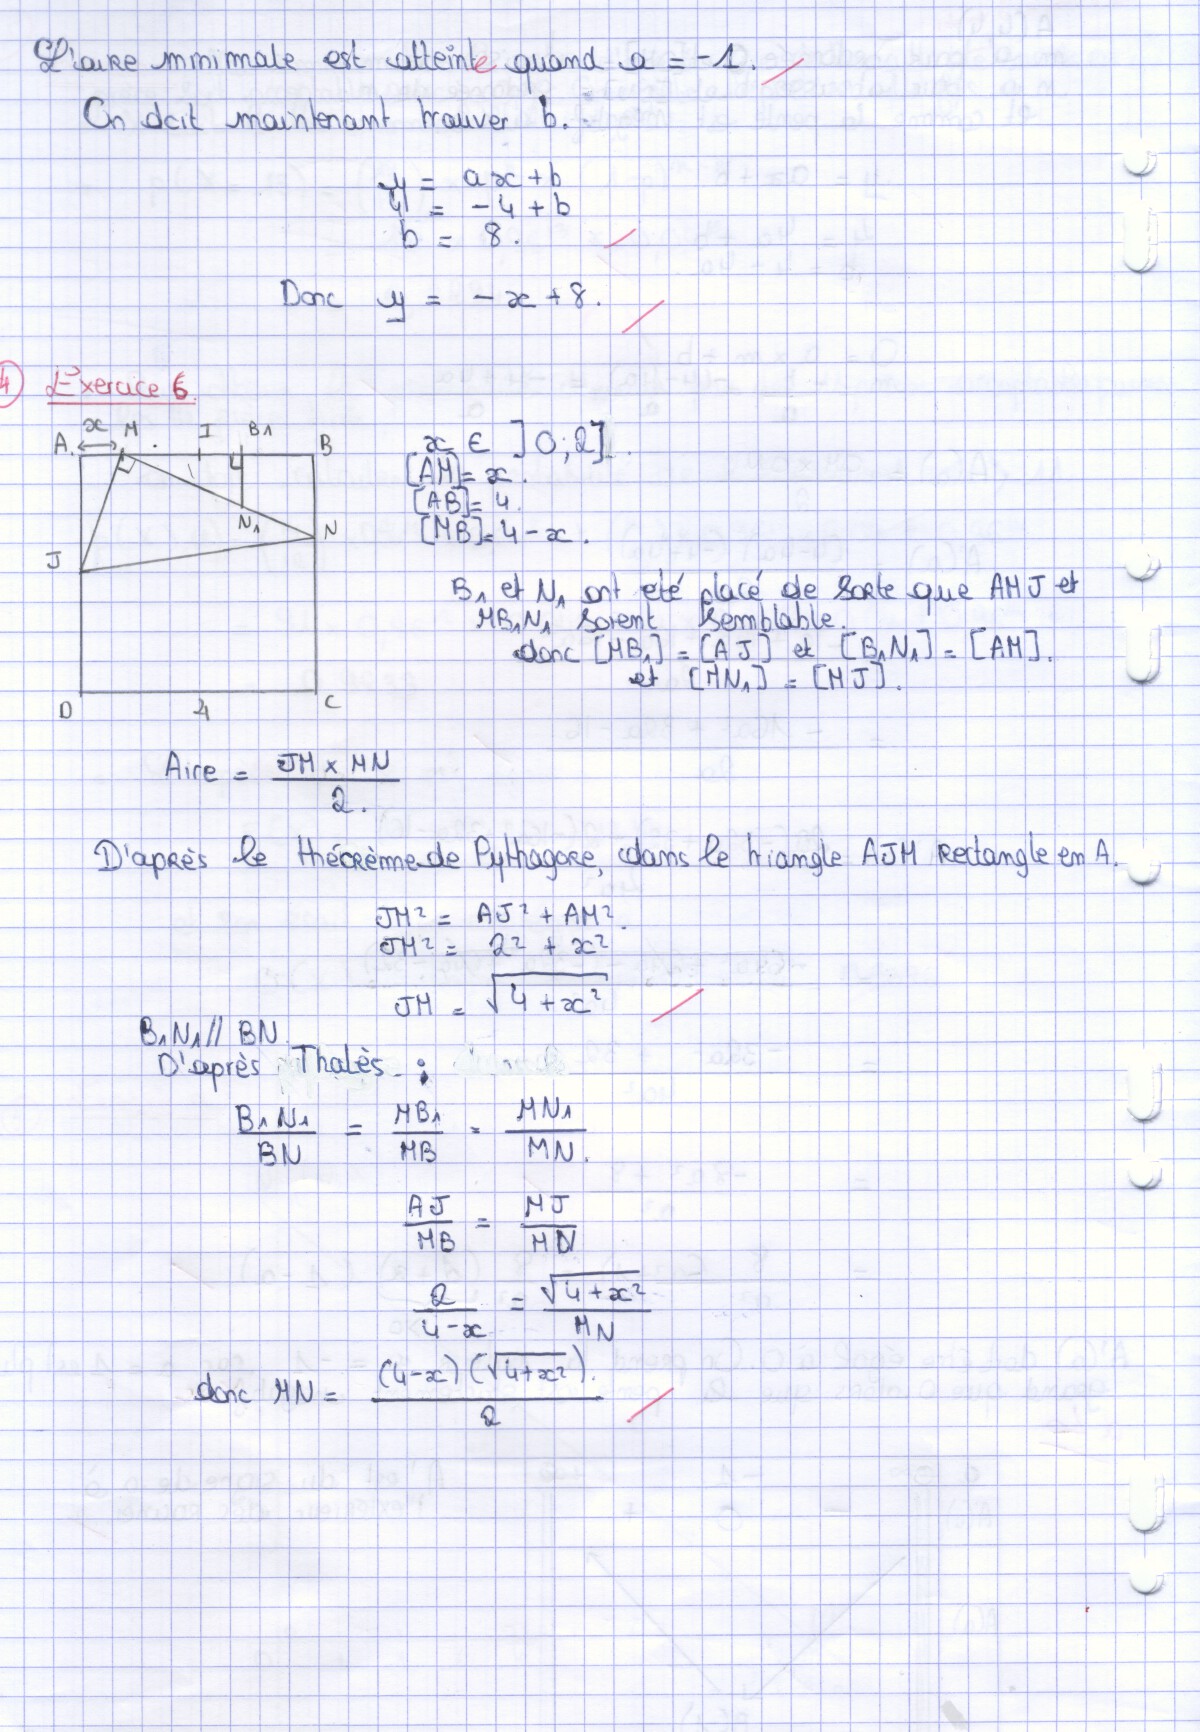 L'aire minimale est atteinte quand a = -1.
On doit maintenant trouver b.
y = ax + b
4 = -4 + b
b = 8.
Donc y = -x + 8.
4 Exercice 6.
x M I B1
A B
N1 N
J
D 4 C
x ∈ ]0;2].
[AM] = x.
[AB] = 4.
[MB] = 4-x.
B1 et N1 ont eté placé de sorte que AMJ et
MB1N1 soient semblable.
donc [MB1] = [AJ] et [B1N1] = [AM].
et [MN1] = [MJ].
Aire = JM x MN / 2.
D'après le théorème de Pythagore, dans le triangle AJM rectangle en A.
JM² = AJ² + AM².
JM² = 2² + x²
JM = √(4+x²)
B1N1 // BN
D'après Thalès :
B1N1/BN = MB1/MB = MN1/MN.
AJ/MB = MJ/MN
2/(4-x) = √(4+x²)/MN
donc MN = (4-x)(√(4+x²))./2